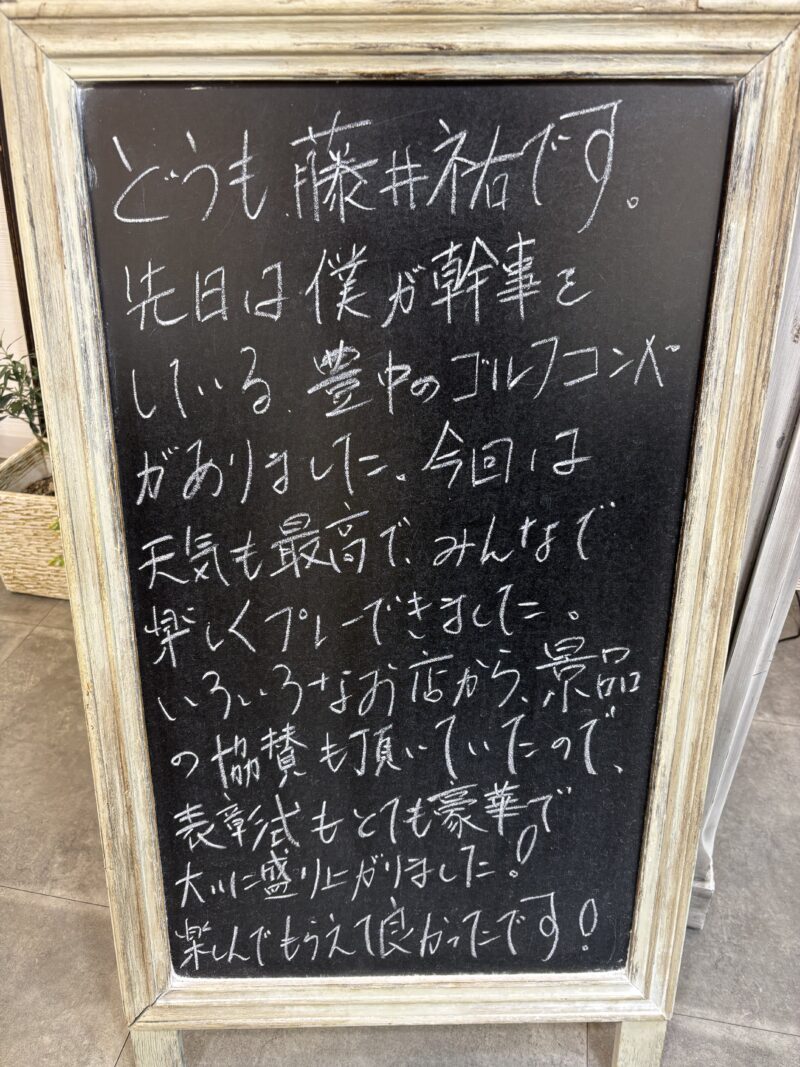 どうも、藤井祐です。
先日は僕が幹事を
している、豊中のゴルフコンペ
がありました。今回は
天気も最高で、みんなで
楽しくプレーできました。
いろいろなお店から、景品
の協賛も頂いていたので、
表彰式もとても豪華で
大いに盛り上がりました!
楽しんでもらえて良かったです!